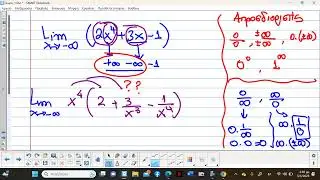 Lim (2x⁴ + 3x - 1)
x→-∞
+∞ -∞ -1
??
Lim x⁴ (2 + 3/x³ - 1/x⁴)
x→-∞
Απροσδιοριστίες
0/0, ±∞/±∞, 0.(±∞)
0⁰, 1^∞
0/0, ∞/∞
0.1/0 ∞.1/0
0.∞